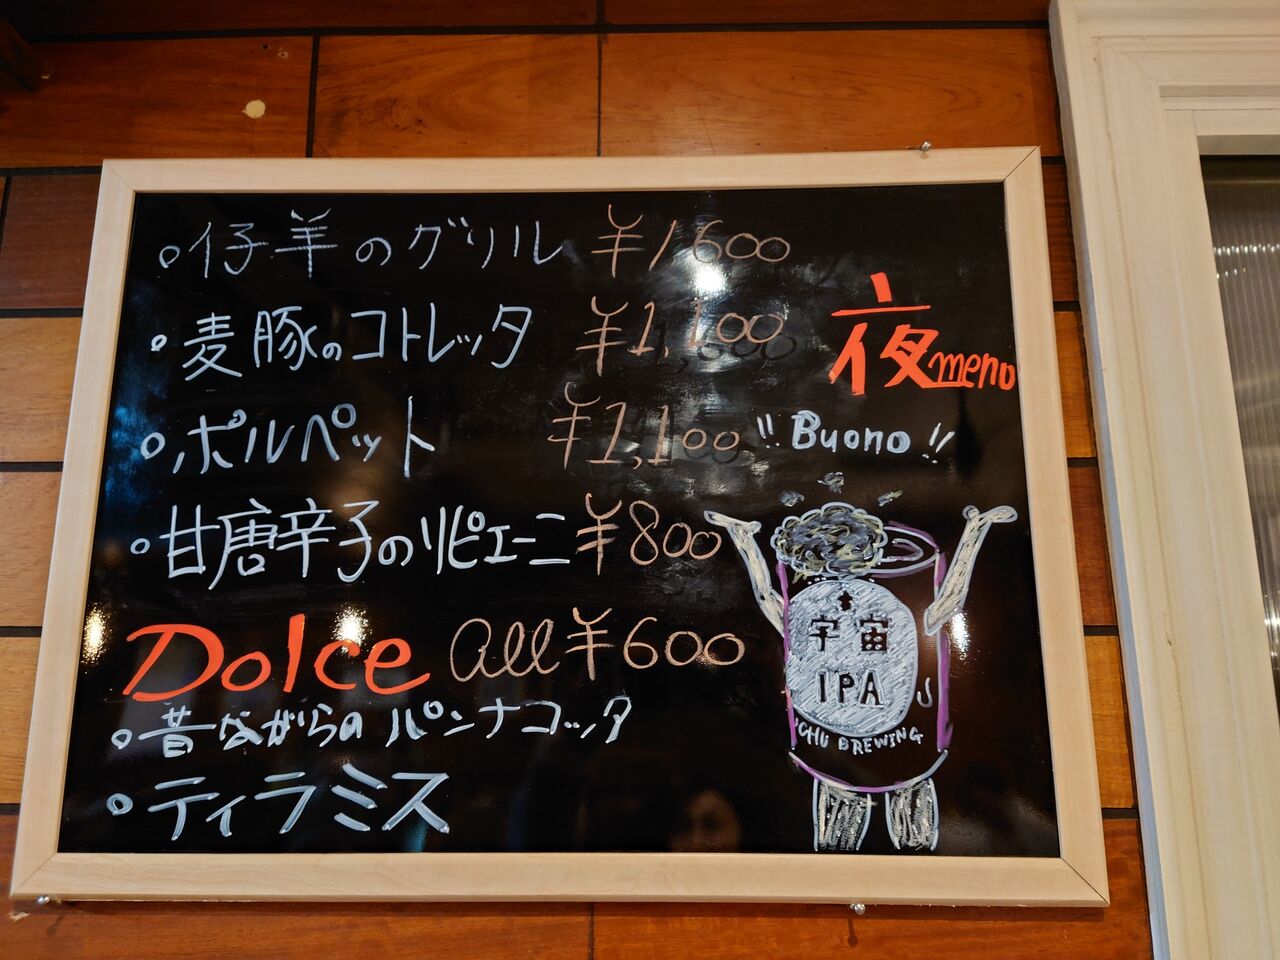 仔羊のグリル ¥1600
麦豚のコトレッタ ¥1,100
ポルペット ¥1,100
甘唐辛子のリピエーニ ¥800
Dolce all ¥600
昔ながらのパンナコッタ
ティラミス
夜menu
"Buono!!
宇宙
IPA
UCHU BREWING